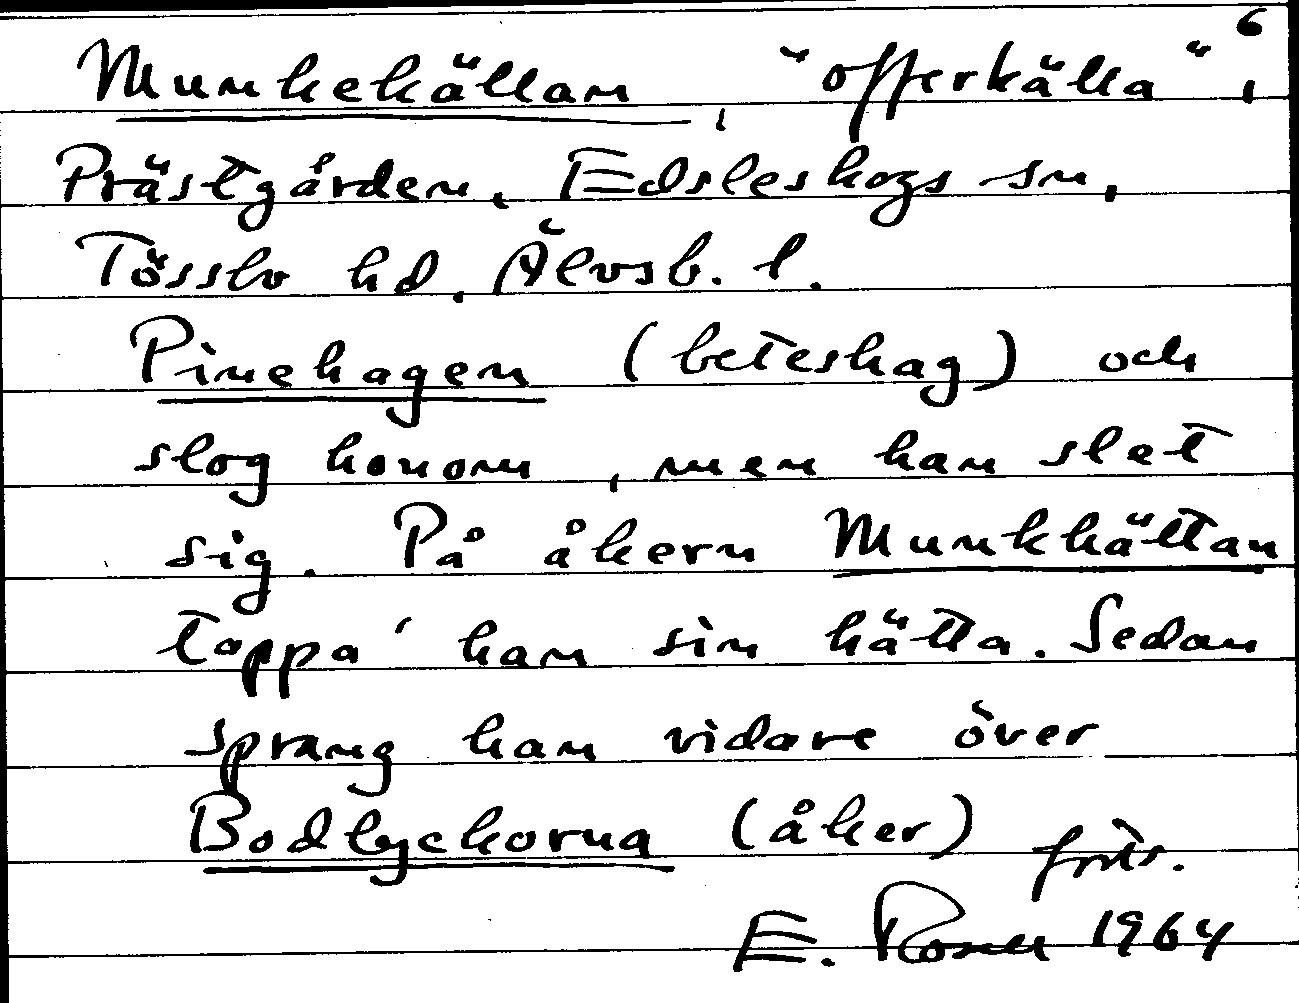 6
Munkekällan, "offerkälla",
Prästgården, Edsleskogs sn,
Tössbo hd, Älvsb. l.
Pinehagen (beteshag) och
slog honom, men han slet
sig. På åkern Munkhättan
tappa' han sin hätta. Sedan
sprang han vidare över
Bodlyckorna (åker)
forts.
E. Rosell 1964